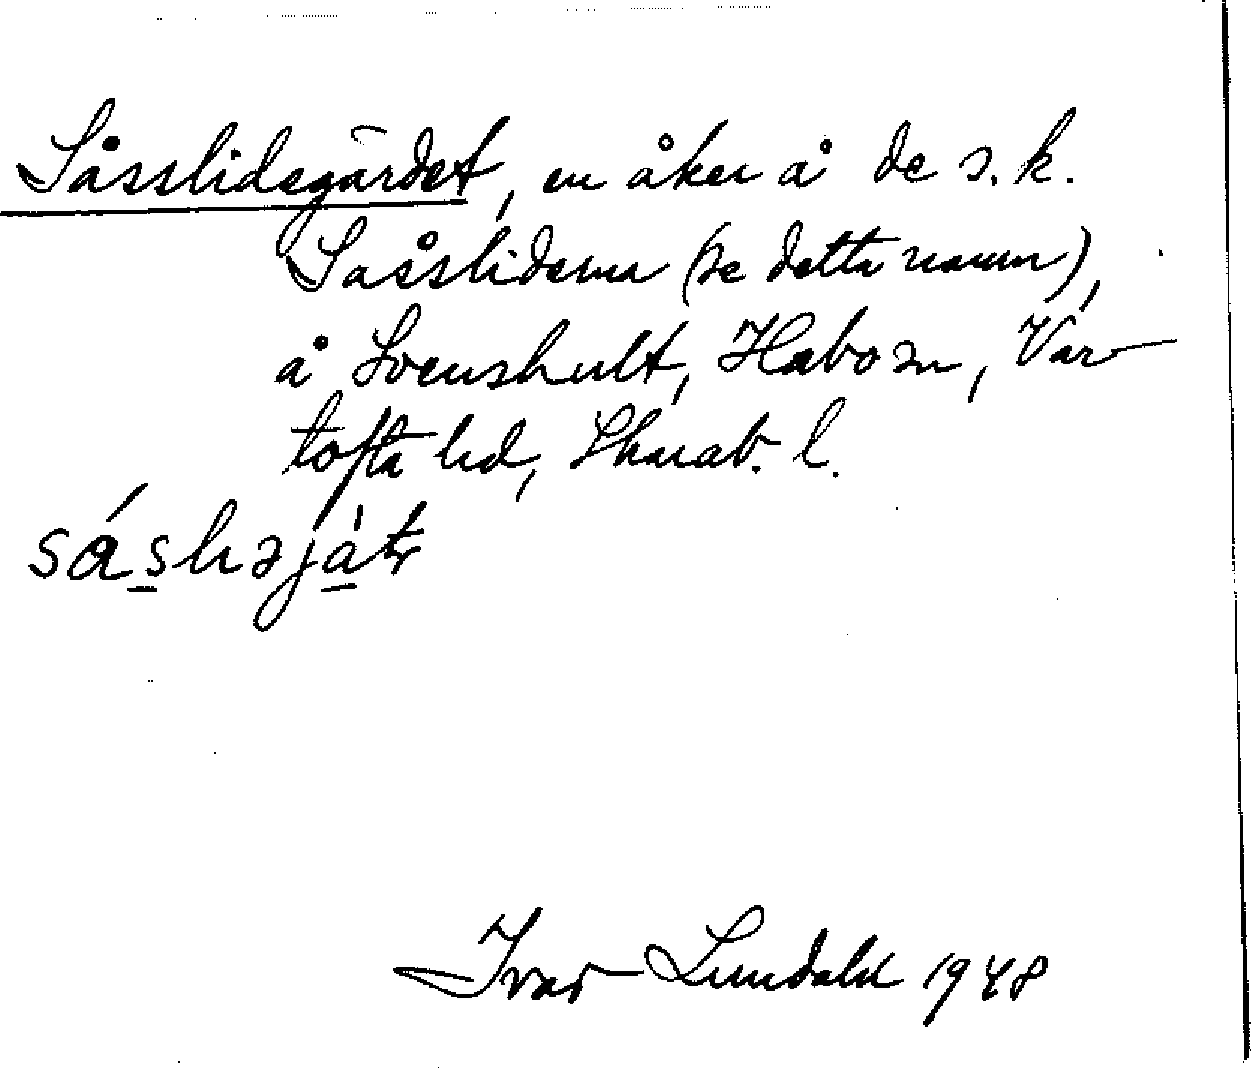 Såsslidegärdet, en åker å de s.k.
Såssliderna (se detta namn),
å Svenshult, Habo sn, Var-
tofta hd, Skarab. l.
Ivar Lundahl 1948